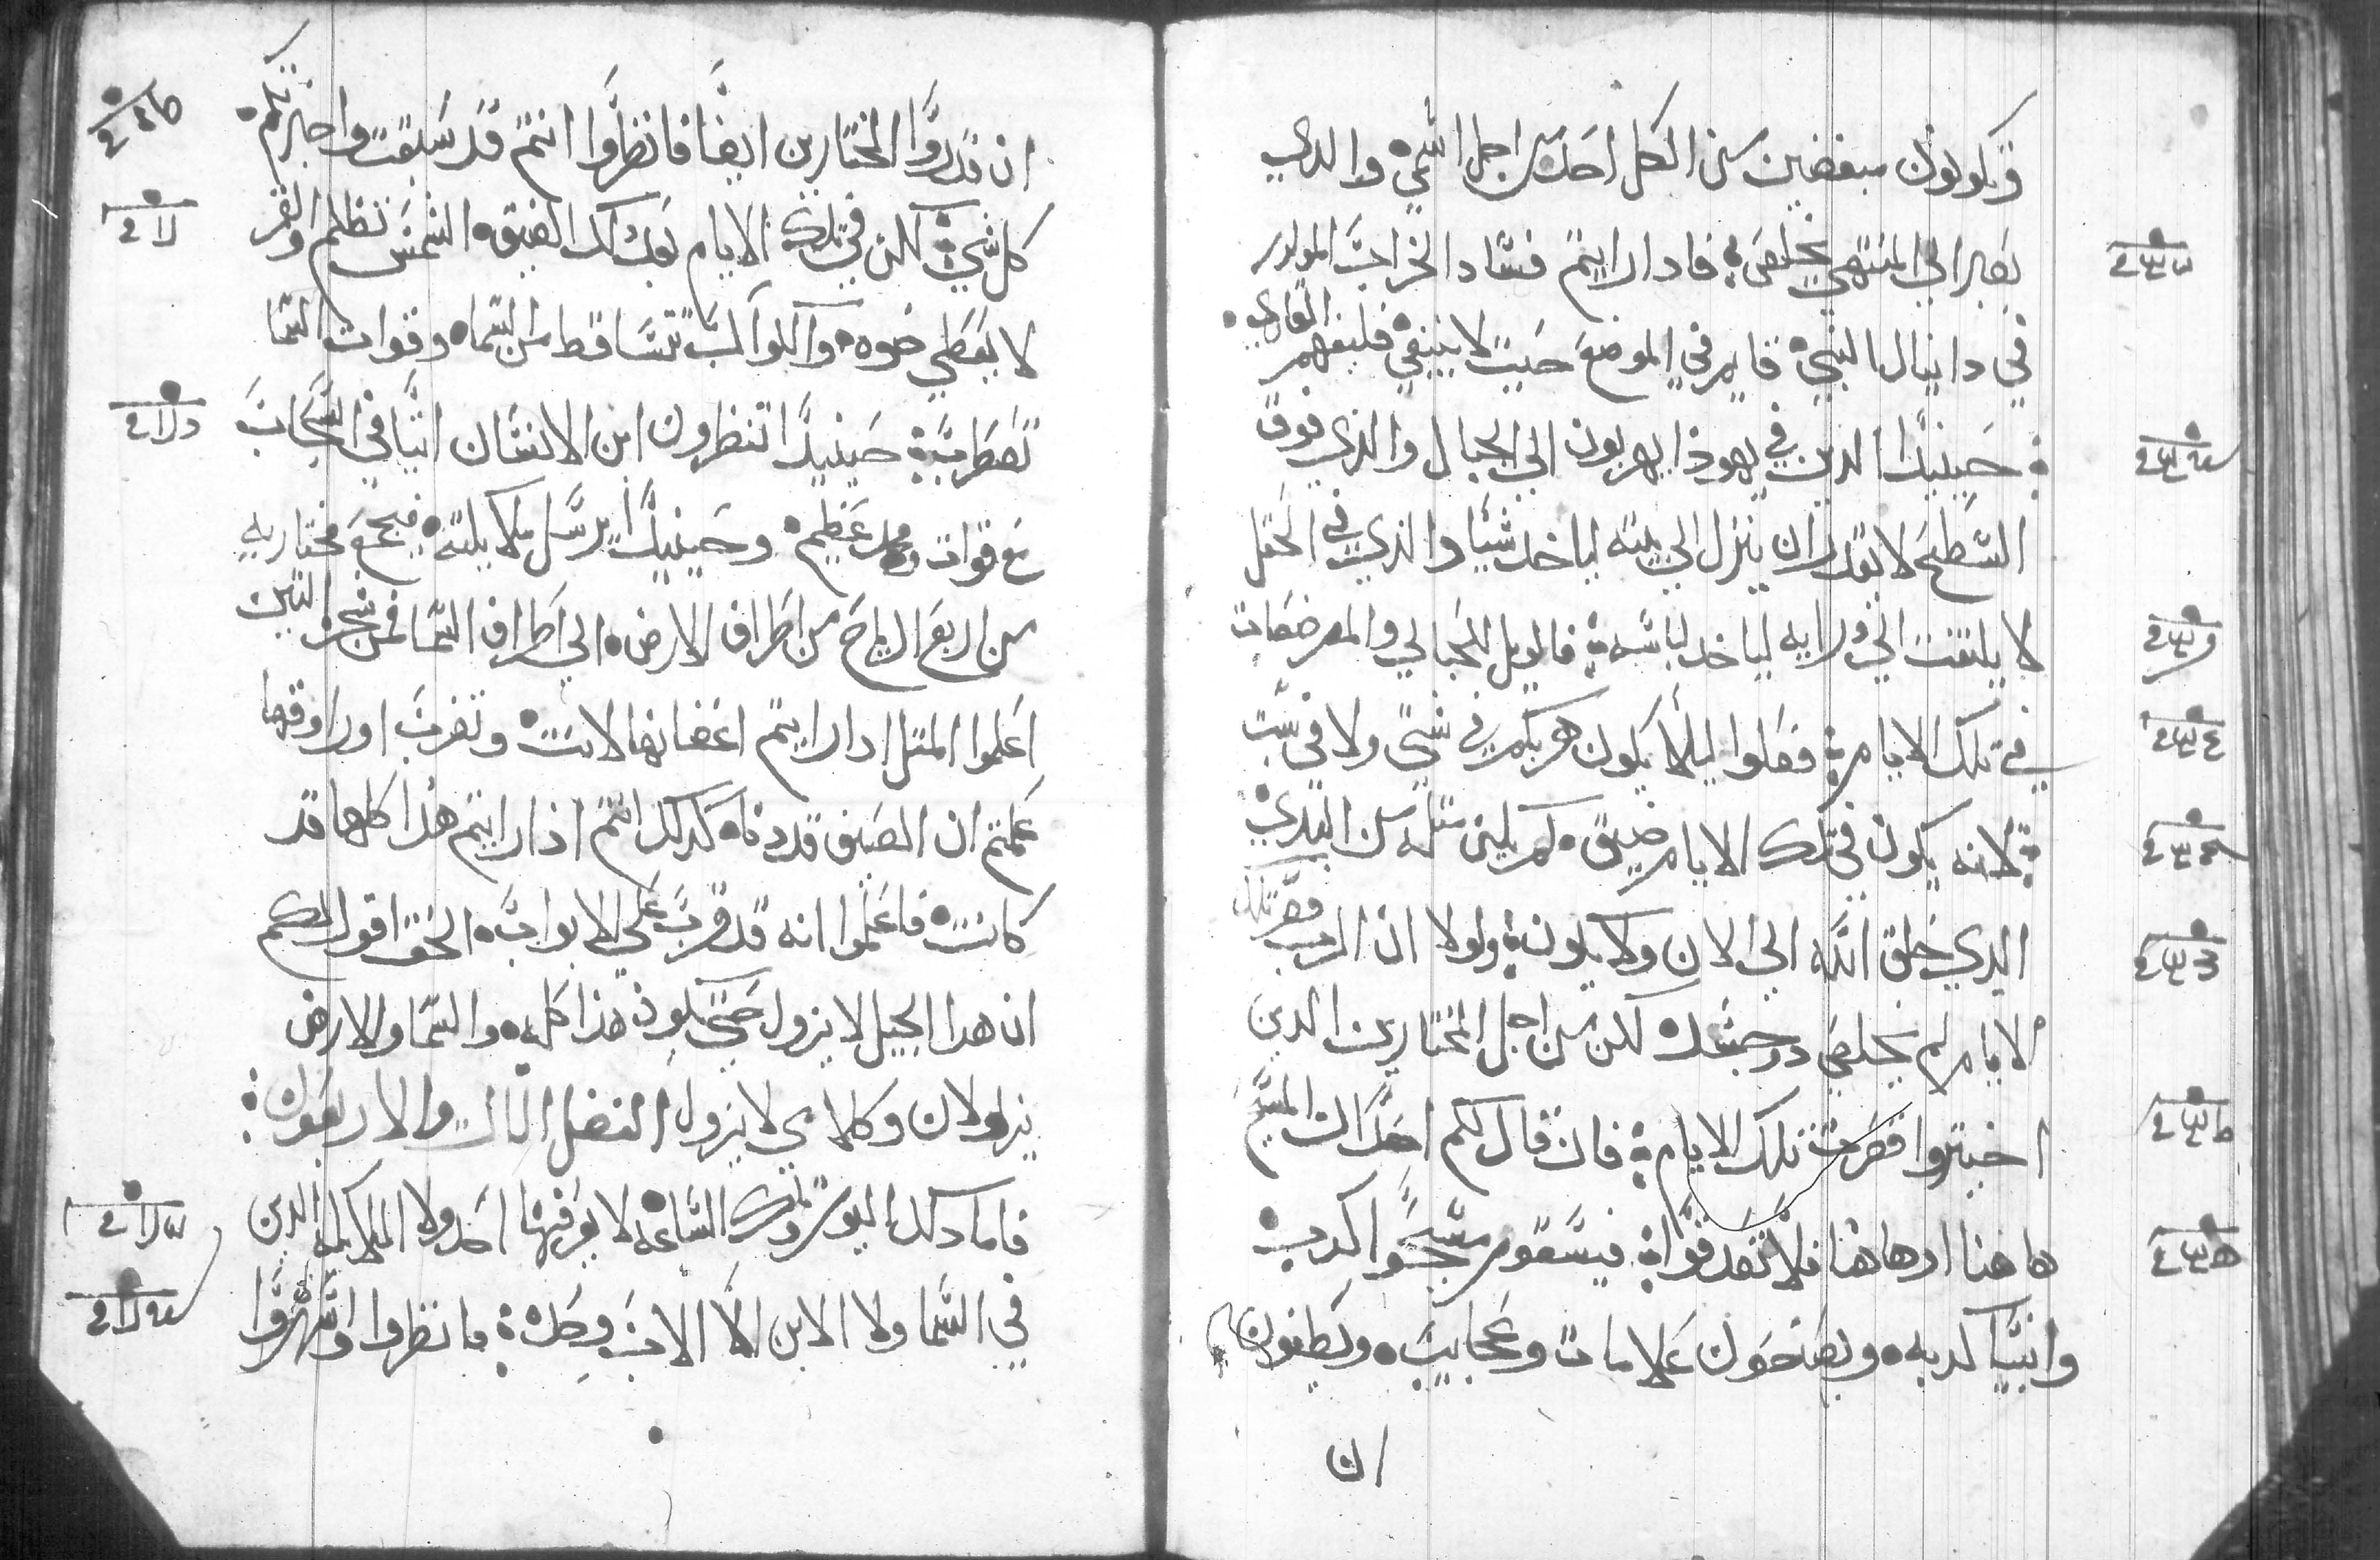 وتكونون مبغضين من الكل احد من اجل اسمي والدي
يصبر الي المنتهي يخلص فادا رايتم فساد الخراب المدكور
في دانيال النبي قايم في الموضع حيت لا ينبغي فليفهم القاري
حينيدا الدين في يهوذا يهربون الي الجبال والذي فوق
السطح لا يقدر ان ينزل الي بيته لياخد شيا والذي في الحقل
لا يلتفت الي ورايه لياخد لباسه فالويل للحبالي والمرضعات
في تلك الايام فصلوا ليلا يكون هربكم في شتي ولا في سبت
لانه يكون في تلك الايام ضيق لم يكن متله من البدي
الدي خلق الله الي الان ولا يكون ولولا ان الرب قصر تلك
الايام لم يخلص دو جسد لكن من اجل المختارين الدين
اختيروا قصرت تلك الايام فان قال لكم احد ان المسيح
هاهنا او هاهنا فلا تصدقوا فيسقوم مسحوا كدب
وانبيا كدبه ويصنحون علامات وعجايب ويطغون
ان
ان قدروا المختارين ايضا فانظروا انتم قد سبقت واخبرتكم
كل شي لكن في تلك الايام بعد دلك الضيق الشمس تظلم والقمر
لا يعطي ضوه والكواكب تتساقط من السما وقوات السما
تضطرب حينيدا تنظرون ابن الانسان اتيا في السحاب
مع قوات ومجد عظيم وحينيدا يرسل ملايكته فيجمع مختاريه
من اربع الرياح من اطراف الارض الي اطراف السما فمن شجرة التين
اعلموا المتل ادا رايتم اغصانها لانت وتفرعت اوراوقها
علمتم ان الصيف قد دنا كدلك انتم اذا رايتم هذا كلها قد
كانت فاعلموا انه قد قرب علي الابواب الحق اقول لكم
ان هدا الجيل لا يزول حتي يكون هذا كله والسما والارض
يزولان وكلامي لا يزول الفصل التالت والاربعون
فاما دلك اليوم وتلك الساعه لا يعرفها احد ولا الملايكه الدين
في السما ولا الابن الا الاب وحده فانظروا واسهروا